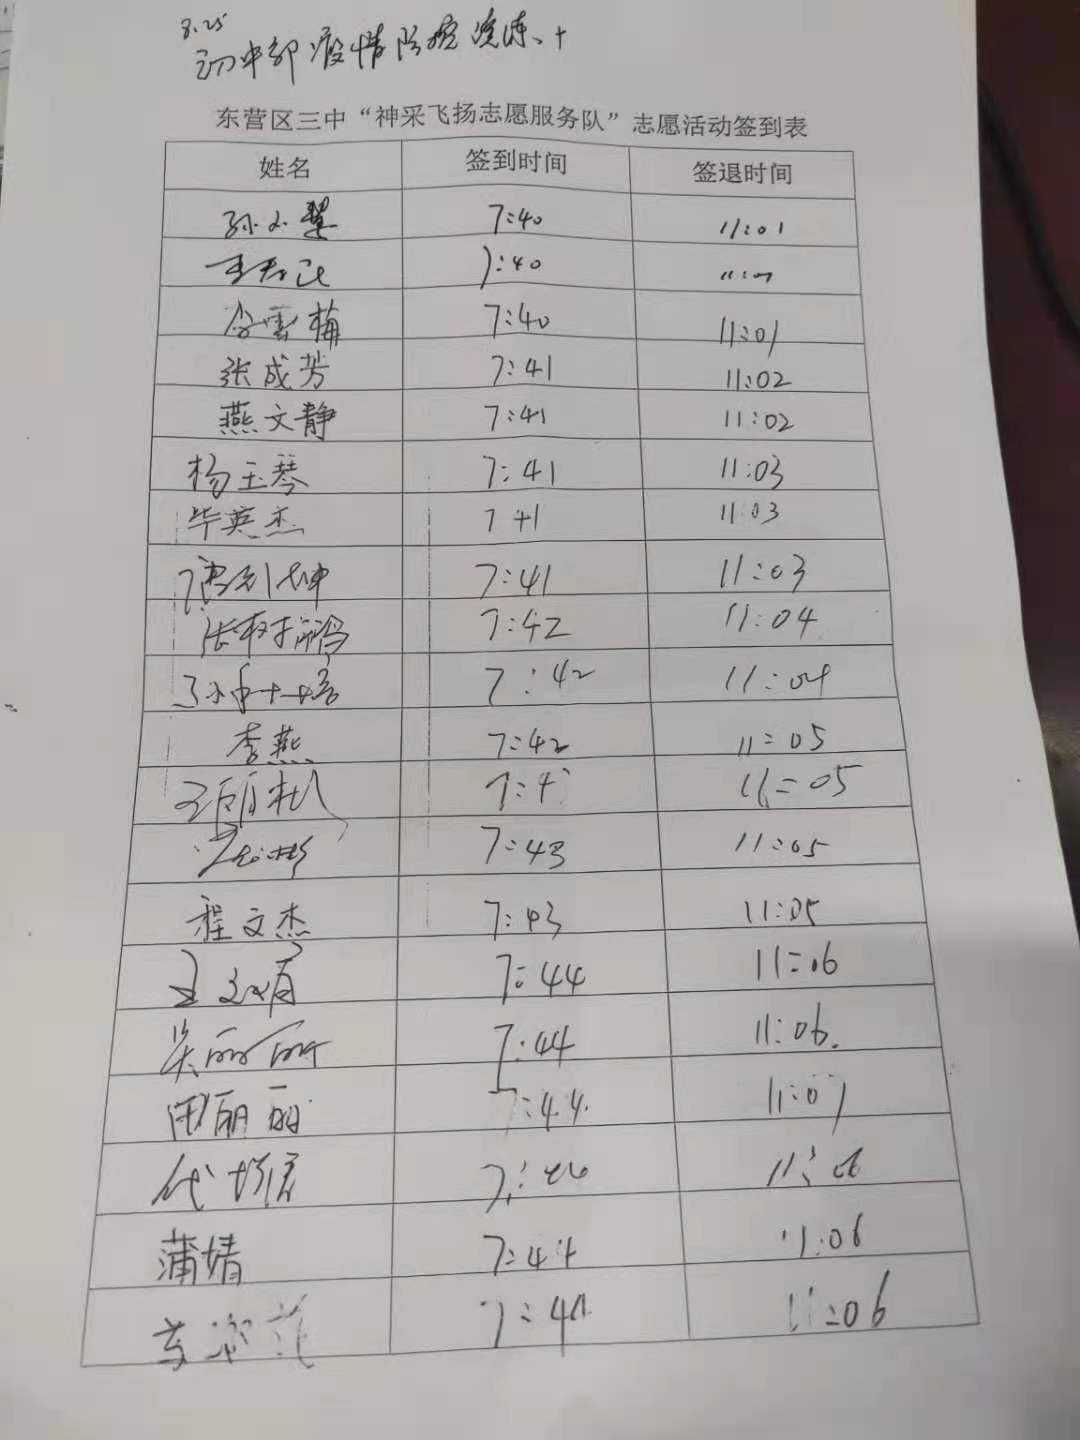 8.25
初中部疫情防控演练
东营区三中“神采飞扬志愿服务队”志愿活动签到表
姓名 签到时间 签退时间
孙小慧 7:40 11:01
7:40
7:40 11:01
张成芳 7:41 11:02
燕文静 7:41 11:02
杨玉琴 7:41 11:03
毕英杰 7 41 11:03
7:41 11:03
张树鹏 7:42 11:04
7:42 11:04
李燕 7:42 11:05
11:05
7:43 11:05
程文杰 7:43 11:05
7:44 11:06
吴丽丽 7:44 11:06.
田丽丽 7:44. 11:07
11:06
蒲婧 7:44 11:06
7:44 11:06